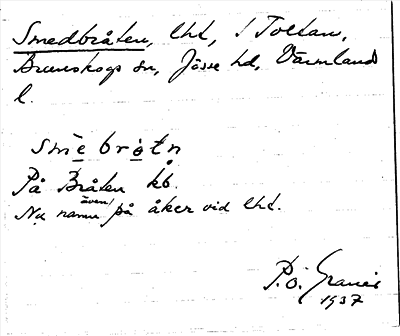 Smedbråten, lht, i Toltan,
Brunskogs sn, Jösse hd, Värmlands
l.
smèbrò̢tn
På Bråten kb.
Nu även namn på åker vid lht.
P.O. Graner
1937